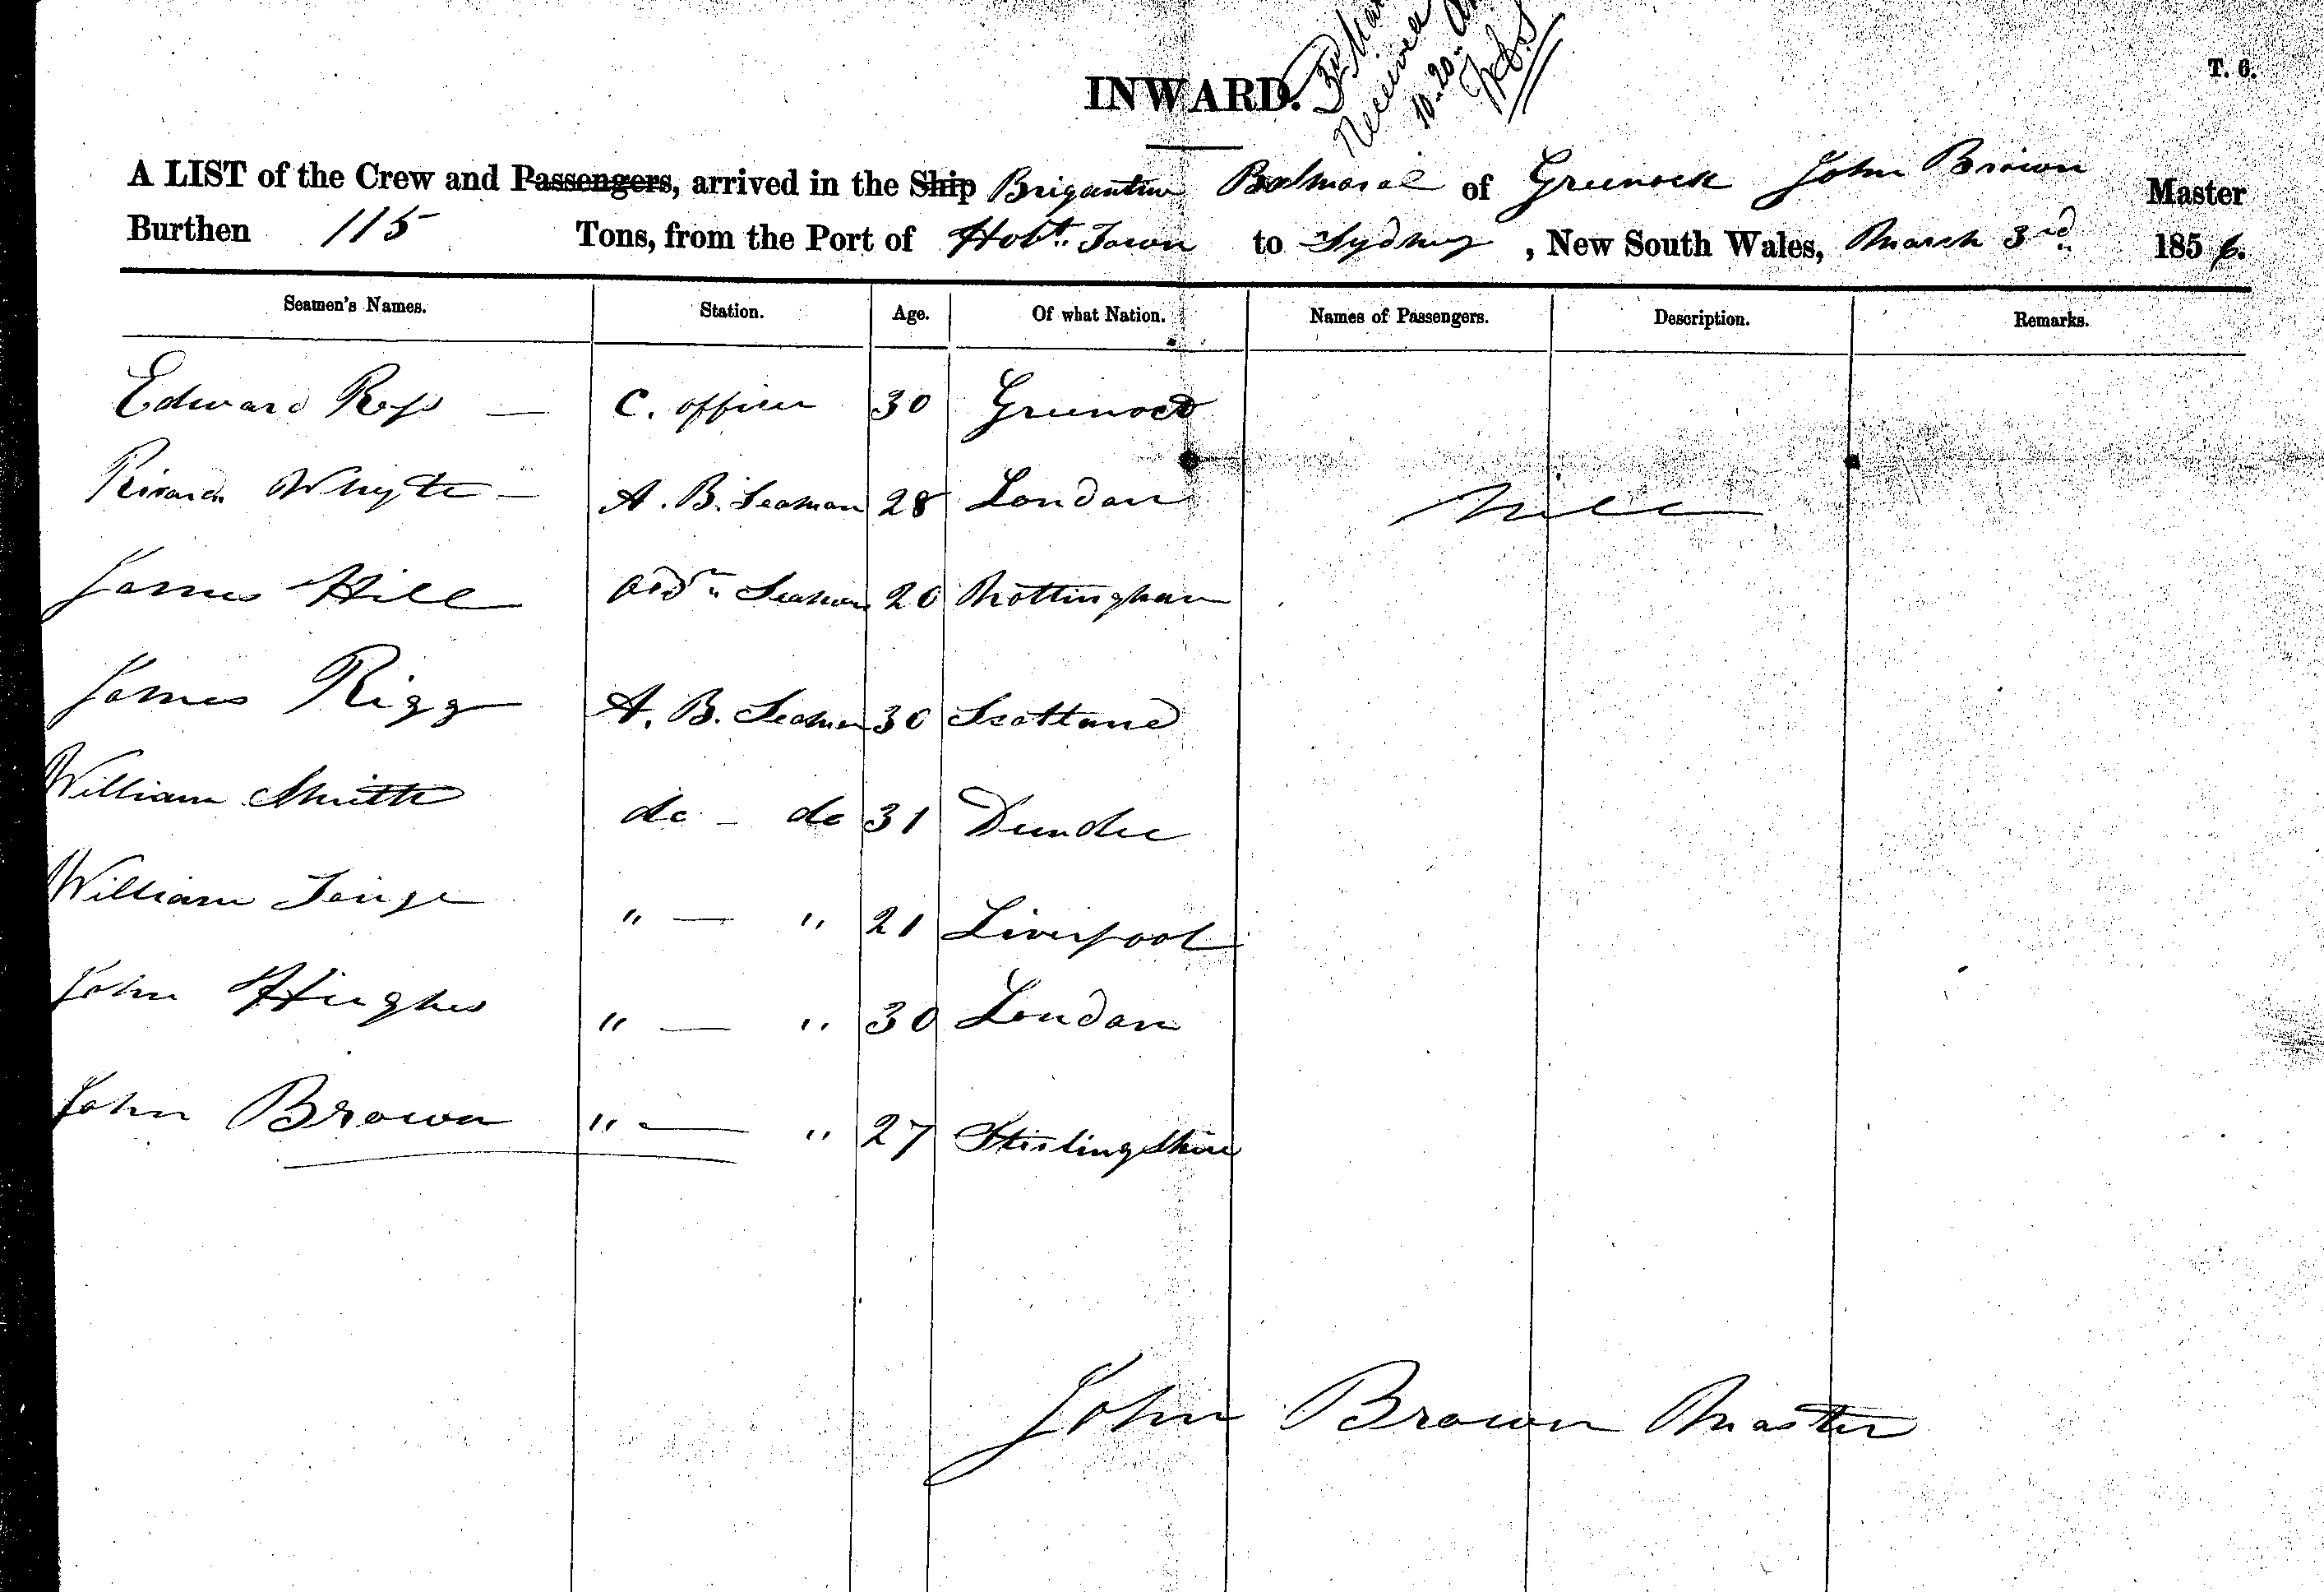 T. 6.
INWARD.
3rd
Received
10-20
A LIST of the Crew and Passengers, arrived in the Ship Brigantine Balmoral of Greenock John Brown Master
Burthen 115 Tons, from the Port of Hobt. Town to Sydney, New South Wales, March 3rd 1856.
Seamen's Names. Station. Age. Of what Nation. Names of Passengers. Description. Remarks.
Edward Ross — C. officer 30 Greenock
Whyte — A. B. Seaman 28 London Nill
James Hill Ordy Seaman 20 Nottingham
James Rigg A. B. Seaman 30 Scotland
William Smith do - do 31 Dundee
William " — " 21 Liverpool
John Hughes " — " 30 London
John Brown " — " 27 Stirlingshire
John Brown Master